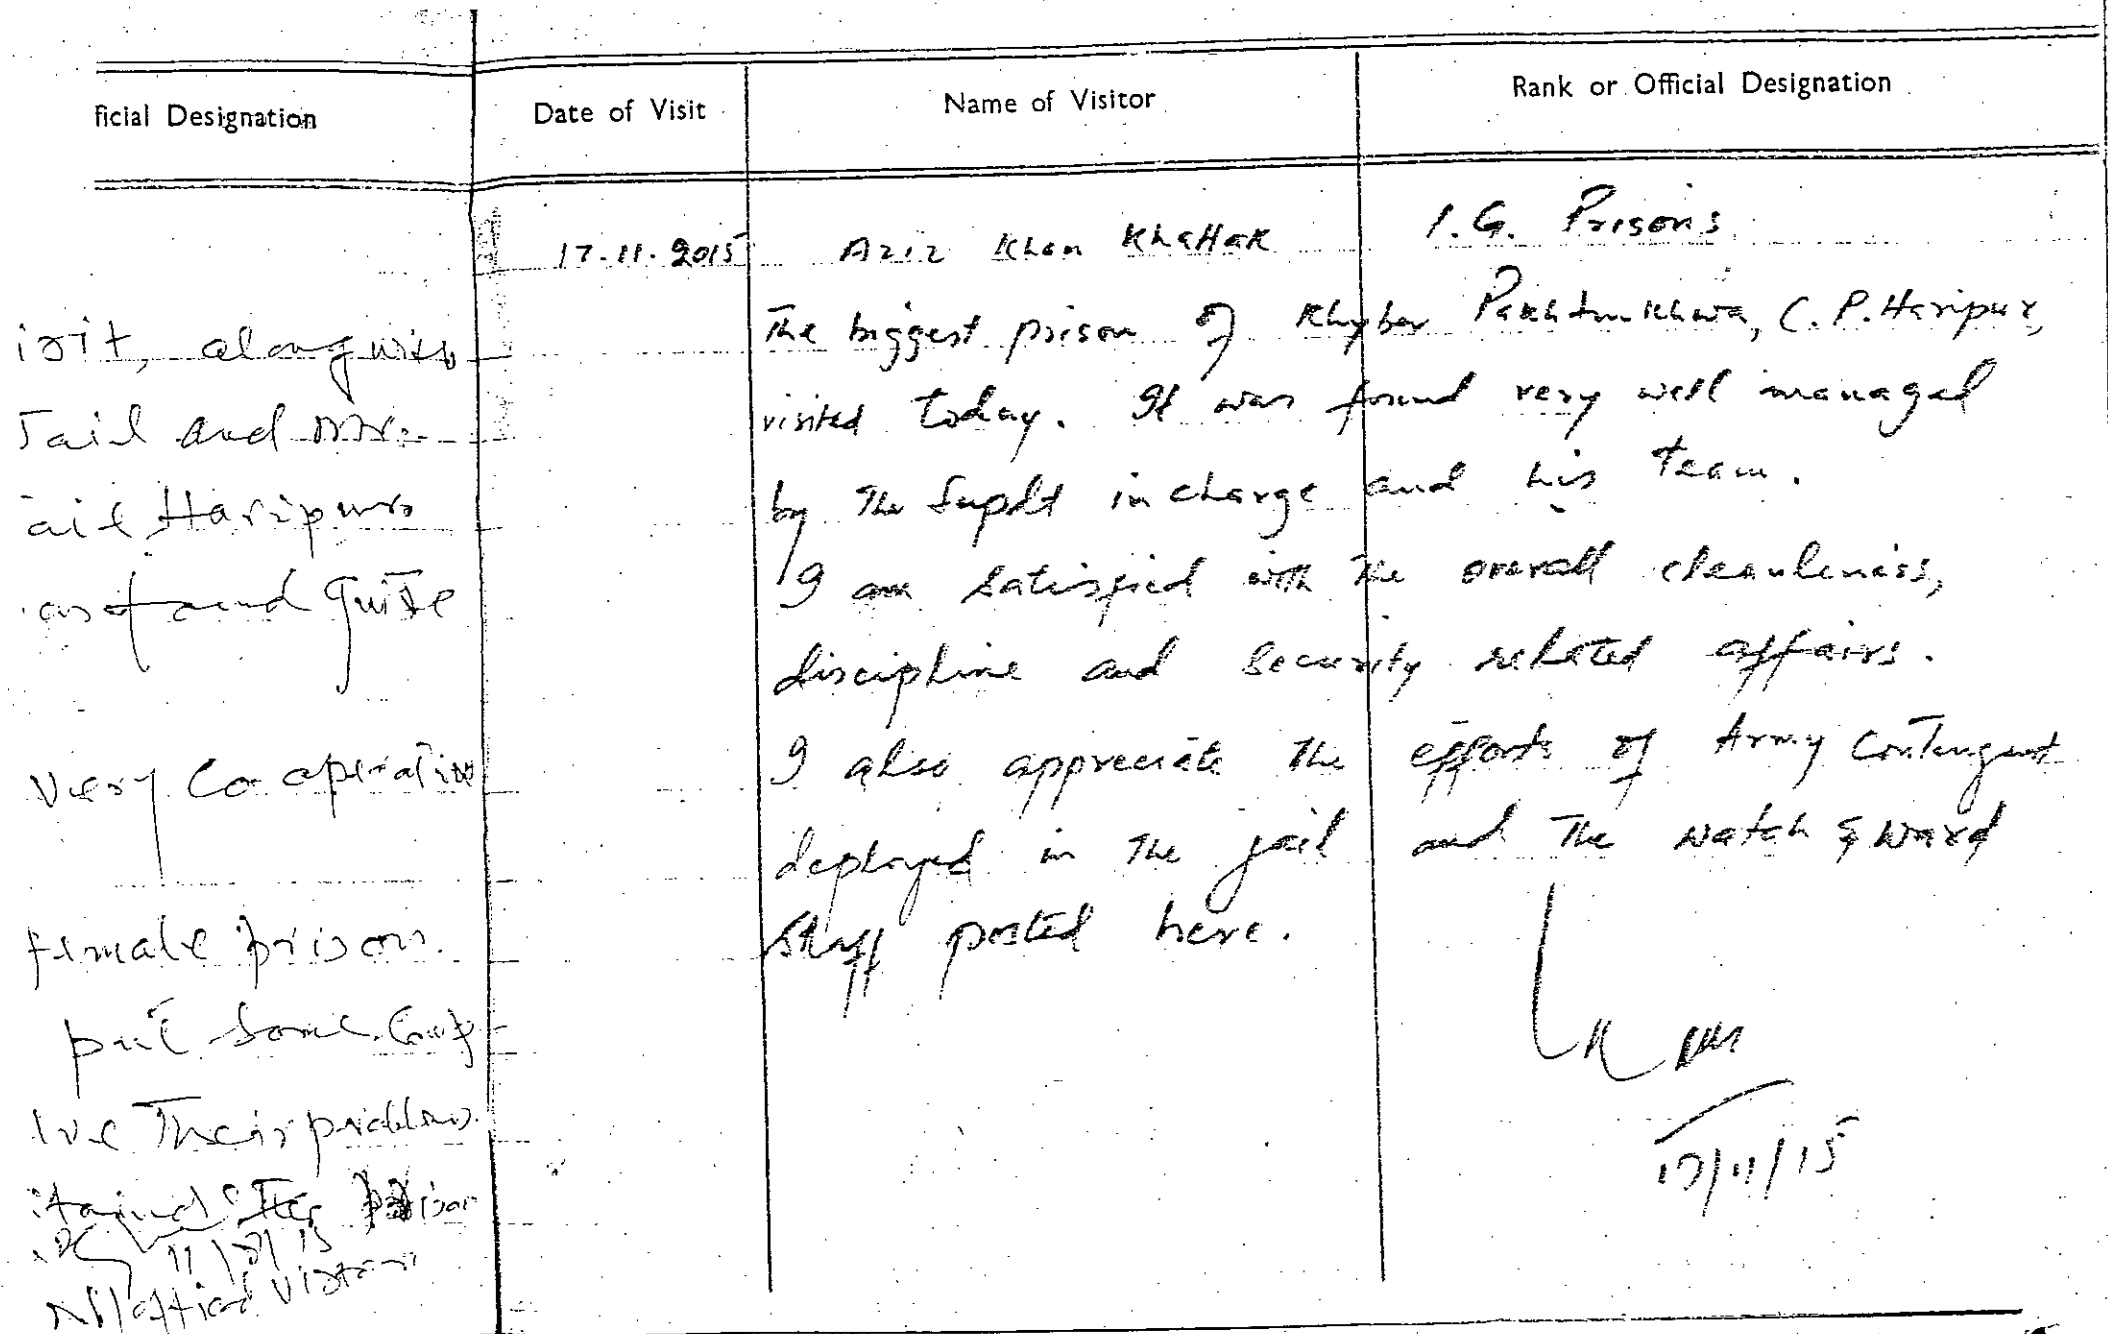 ficial Designation
irit, alongwith
Jail and
ail Haripur
as found quite
very Co operative
female prison.
put some
lve Their problems.
11/8/15
N/official Visitor
Date of Visit Name of Visitor Rank or Official Designation
17.11.2015 Aziz Khan Khattak I.G. Prisons
The biggest prison of Khyber Pakhtunkhwa, C.P. Haripur,
visited today. It was found very well managed
by The Supdt incharge and his team.
I am satisfied with The overall cleanleness,
discipline and security related affairs.
I also appreciate The efforts of Army Contengent
deployed in The jail and The watch & ward
staff posted here.
17/11/15